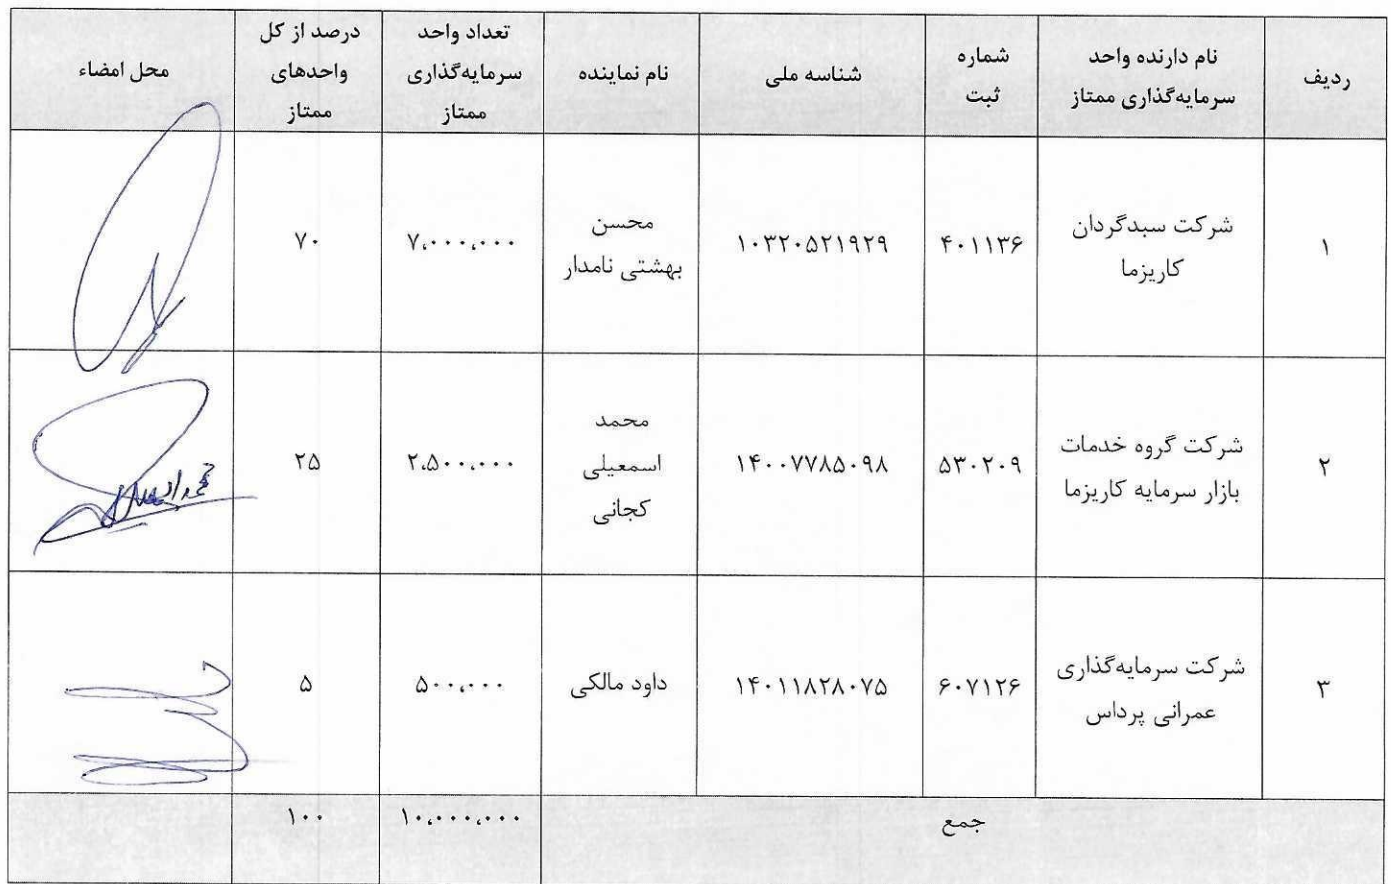 ردیف
نام دارنده واحد
سرمایه‌گذاری ممتاز
شماره
ثبت
شناسه ملی
نام نماینده
تعداد واحد
سرمایه‌گذاری
ممتاز
درصد از کل
واحدهای
ممتاز
محل امضاء
۱
شرکت سبدگردان
کاریزما
۴۰۱۱۳۶
۱۰۳۲۰۵۲۱۹۲۹
محسن
بهشتی نامدار
۷,۰۰۰,۰۰۰
۷۰
۲
شرکت گروه خدمات
بازار سرمایه کاریزما
۵۳۰۲۰۹
۱۴۰۰۷۷۸۵۰۹۸
محمد
اسمعیلی
کجانی
۲,۵۰۰,۰۰۰
۲۵
۳
شرکت سرمایه‌گذاری
عمرانی پرداس
۶۰۷۱۲۶
۱۴۰۱۱۸۲۸۰۷۵
داود مالکی
۵۰۰,۰۰۰
۵
جمع
۱۰,۰۰۰,۰۰۰
۱۰۰